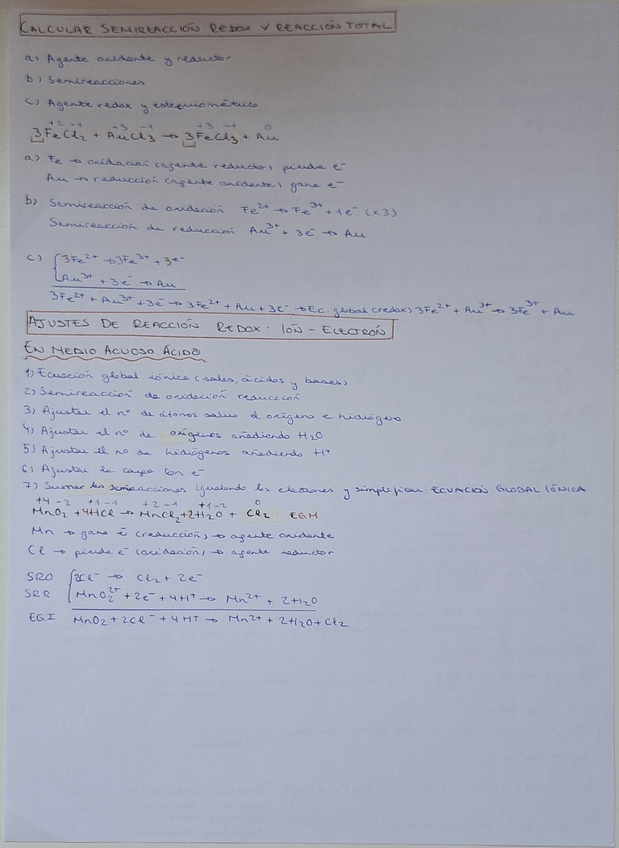 CALCULAR SEMIREACCIÓN REDOX Y REACCIÓN TOTAL
a) Agente oxidante y reductor
b) Semireacciones
c) Agente redox y estequiométrico
+2 -1 +3 -1 +3 -1 0
3FeCl2 + AuCl3 → 3FeCl3 + Au
a) Fe → oxidación (agente reductor), pierde e-
Au → reducción (agente oxidante), gana e-
b) Semireacción de oxidación Fe2+ → Fe3+ + 1e- (x3)
Semireacción de reducción Au3+ + 3e- → Au
c) { 3Fe2+ → 3Fe3+ + 3e-
Au3+ + 3e- → Au
3Fe2+ + Au3+ + 3e- → 3Fe2+ + Au + 3e- → Ec. global (redox) 3Fe2+ + Au3+ → 3Fe3+ + Au
AJUSTES DE REACCIÓN REDOX: IÓN - ELECTRÓN
EN MEDIO ACUOSO ÁCIDO
1) Ecuación global iónica (sales, ácidos y bases)
2) Semireacción de oxidación reducción
3) Ajustar el nº de átomos salvo el oxígeno e hidrógeno
4) Ajustar el nº de oxígenos añadiendo H2O
5) Ajustar el no de hidrógenos añadiendo H+
6) Ajustar la carga con e-
7) Sumar las semireacciones igualando los electrones y simplificar: ECUACIÓN GLOBAL IÓNICA
+4 -2 +1 -1 +2 -1 +1 -2 0
MnO2 + 4HCl → MnCl2 + 2H2O + Cl2 EGM
Mn → gana e- (reducción) → agente oxidante
Cl → pierde e- (oxidación) → agente reductor
SRO { 2Cl- → Cl2 + 2e-
SRR MnO2 2+ + 2e- + 4H+ → Mn2+ + 2H2O
EGI MnO2 + 2Cl- + 4H+ → Mn2+ + 2H2O + Cl2